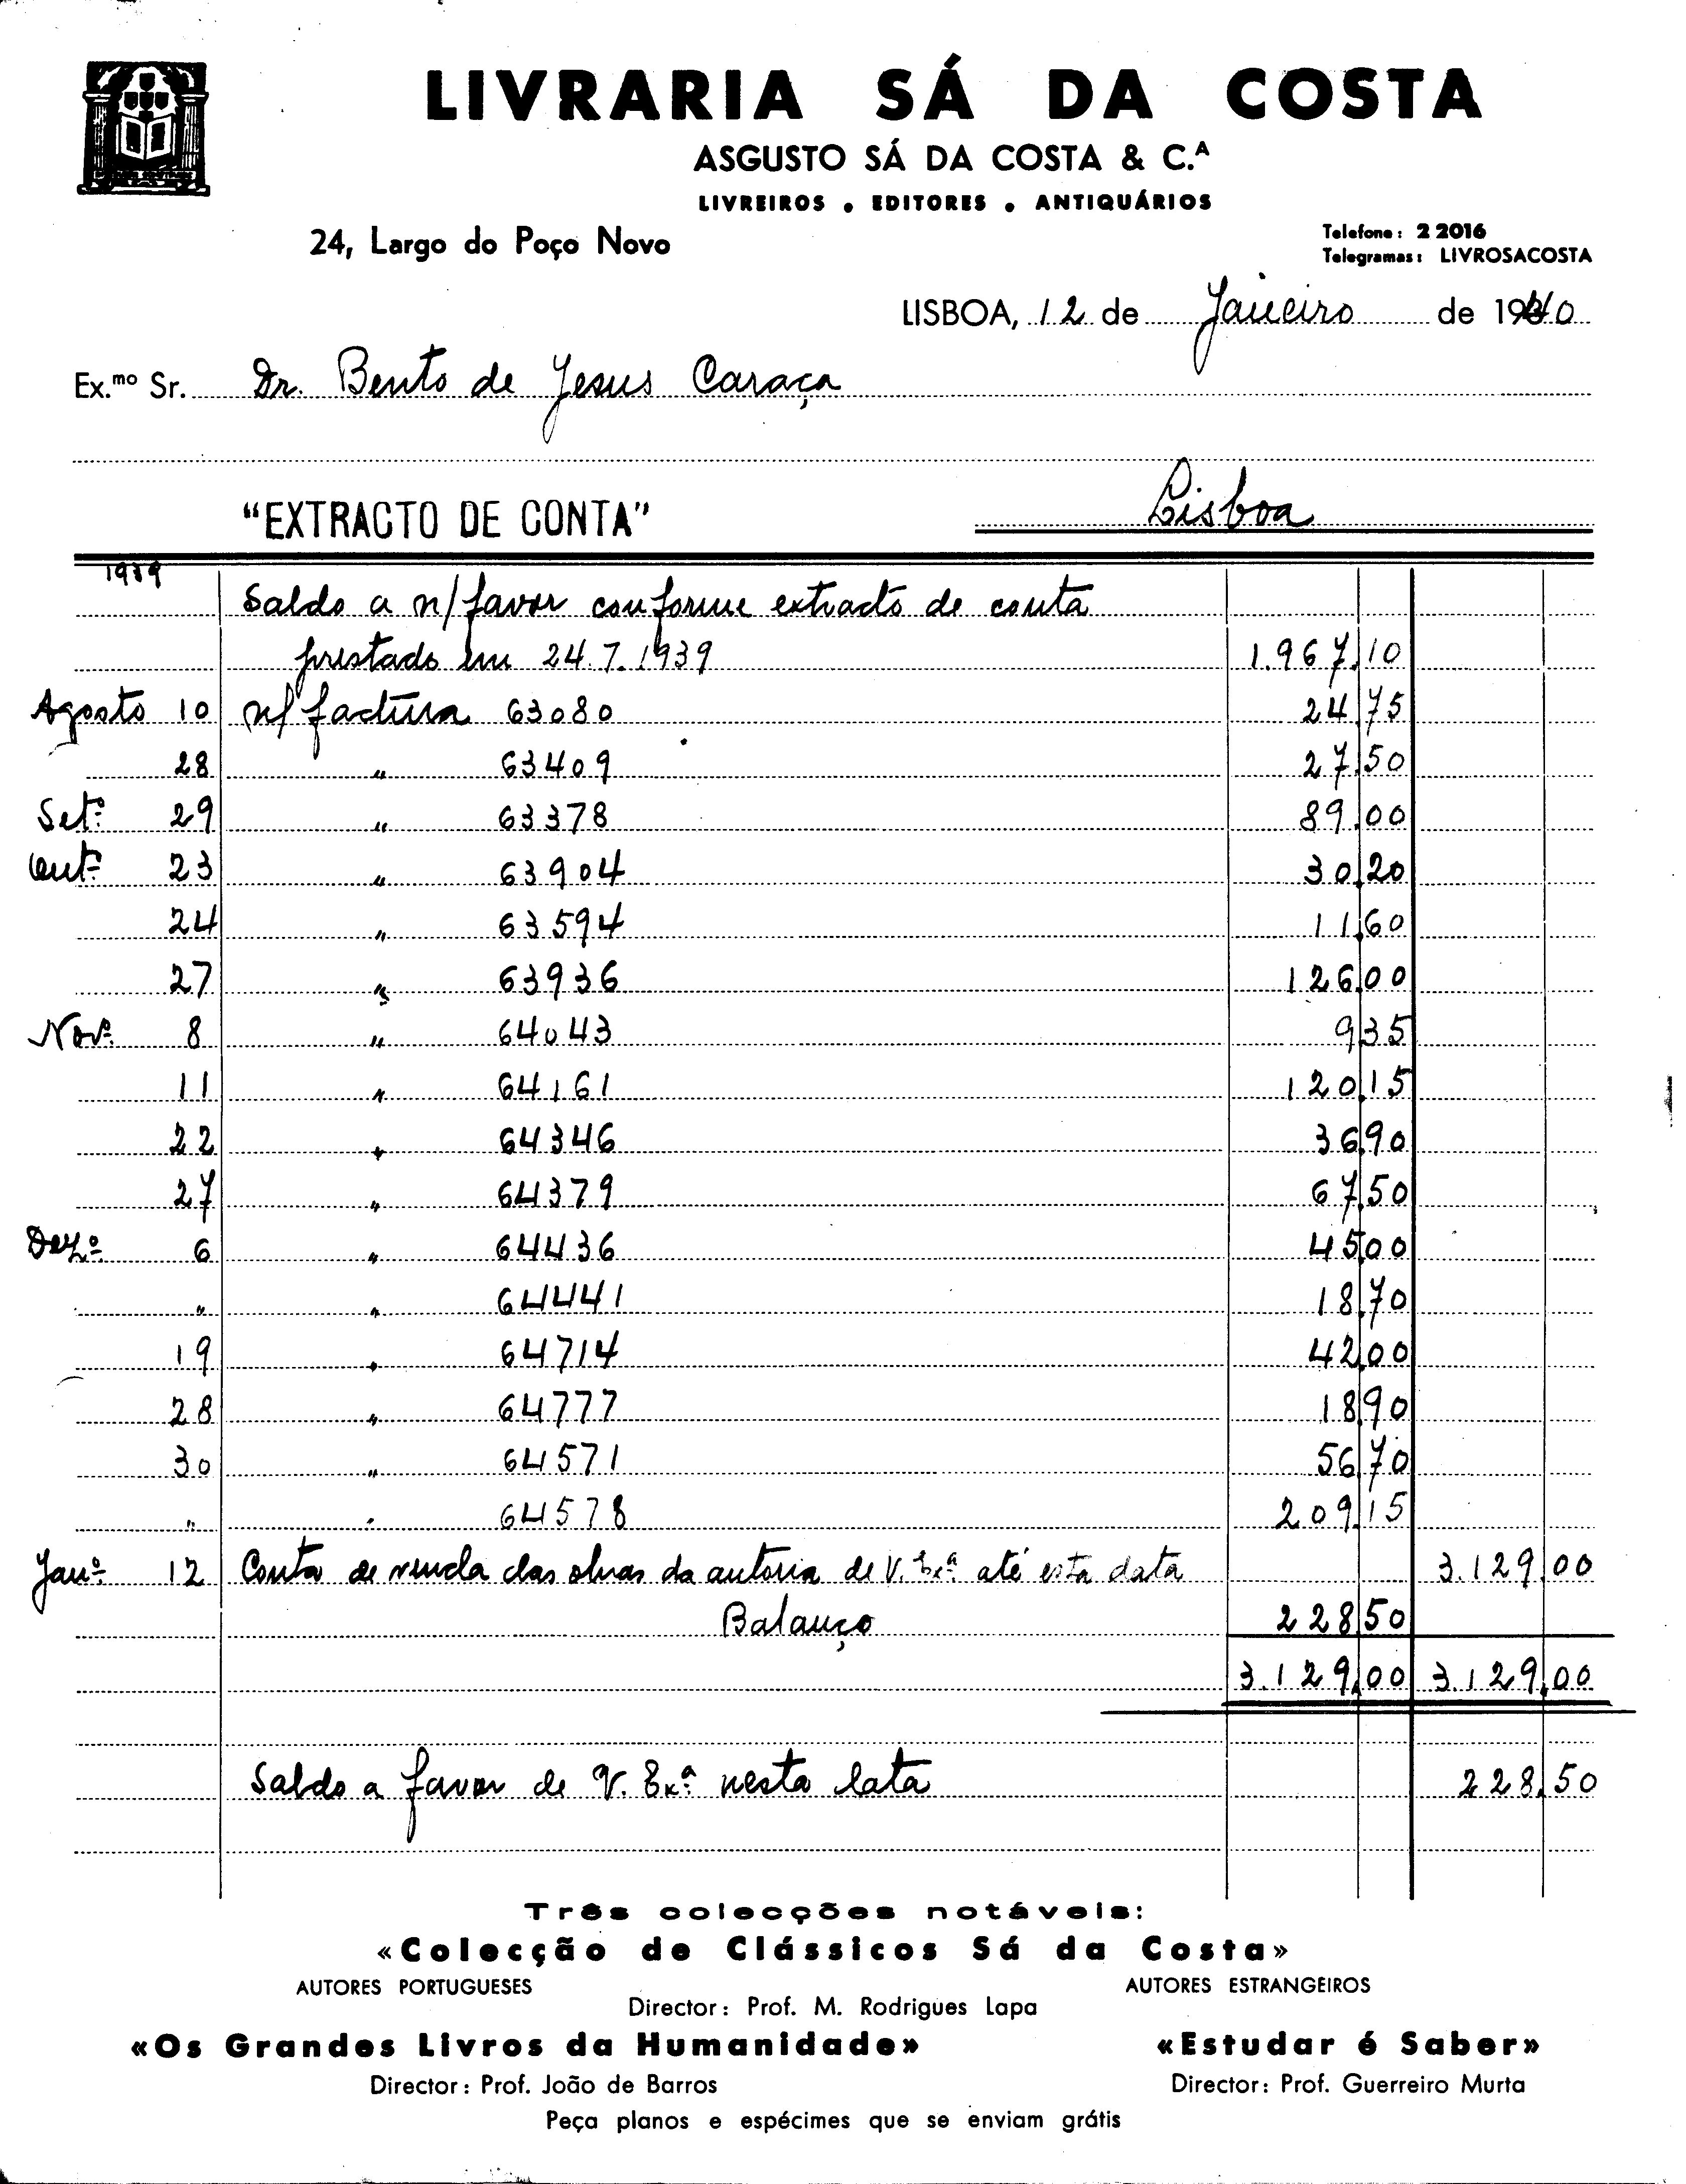 LIVRARIA SÁ DA COSTA
ASGUSTO SÁ DA COSTA & C.ᴬ
LIVREIROS • EDITORES • ANTIQUÁRIOS
24, Largo do Poço Novo
Telefone: 2 2016
Telegramas: LIVROSACOSTA
LISBOA, 12 de Janeiro de 1940
Ex.mo Sr. Dr. Bento de Jesus Caraça
Lisboa
"EXTRACTO DE CONTA"
1939
Saldo a n/ favor conforme extracto de conta
prestado em 24.7.1939 1.967,10
Agosto 10 n/ factura 63080 24,75
28 " 63409 27,50
Set.º 29 " 63378 89,00
Out.º 23 " 63904 30,20
24 " 63594 11,60
27 " 63936 126,00
Nov.º 8 " 64043 9,35
11 " 64161 120,15
22 " 64346 36,90
27 " 64379 67,50
Dez.º 6 " 64436 45,00
" " 64441 18,70
19 " 64714 42,00
28 " 64777 18,90
30 " 64571 56,70
" " 64578 209,15
Jan.º 12 Conta de venda das obras da autoria de V. Ex.ª até esta data 3.129,00
Balanço 228,50
3.129,00 3.129,00
Saldo a favor de V. Ex.ª nesta data 228,50
Três colecções notáveis:
«Colecção de Clássicos Sá da Costa»
AUTORES PORTUGUESES AUTORES ESTRANGEIROS
Director: Prof. M. Rodrigues Lapa
«Os Grandes Livros da Humanidade» «Estudar é Saber»
Director: Prof. João de Barros Director: Prof. Guerreiro Murta
Peça planos e espécimes que se enviam grátis